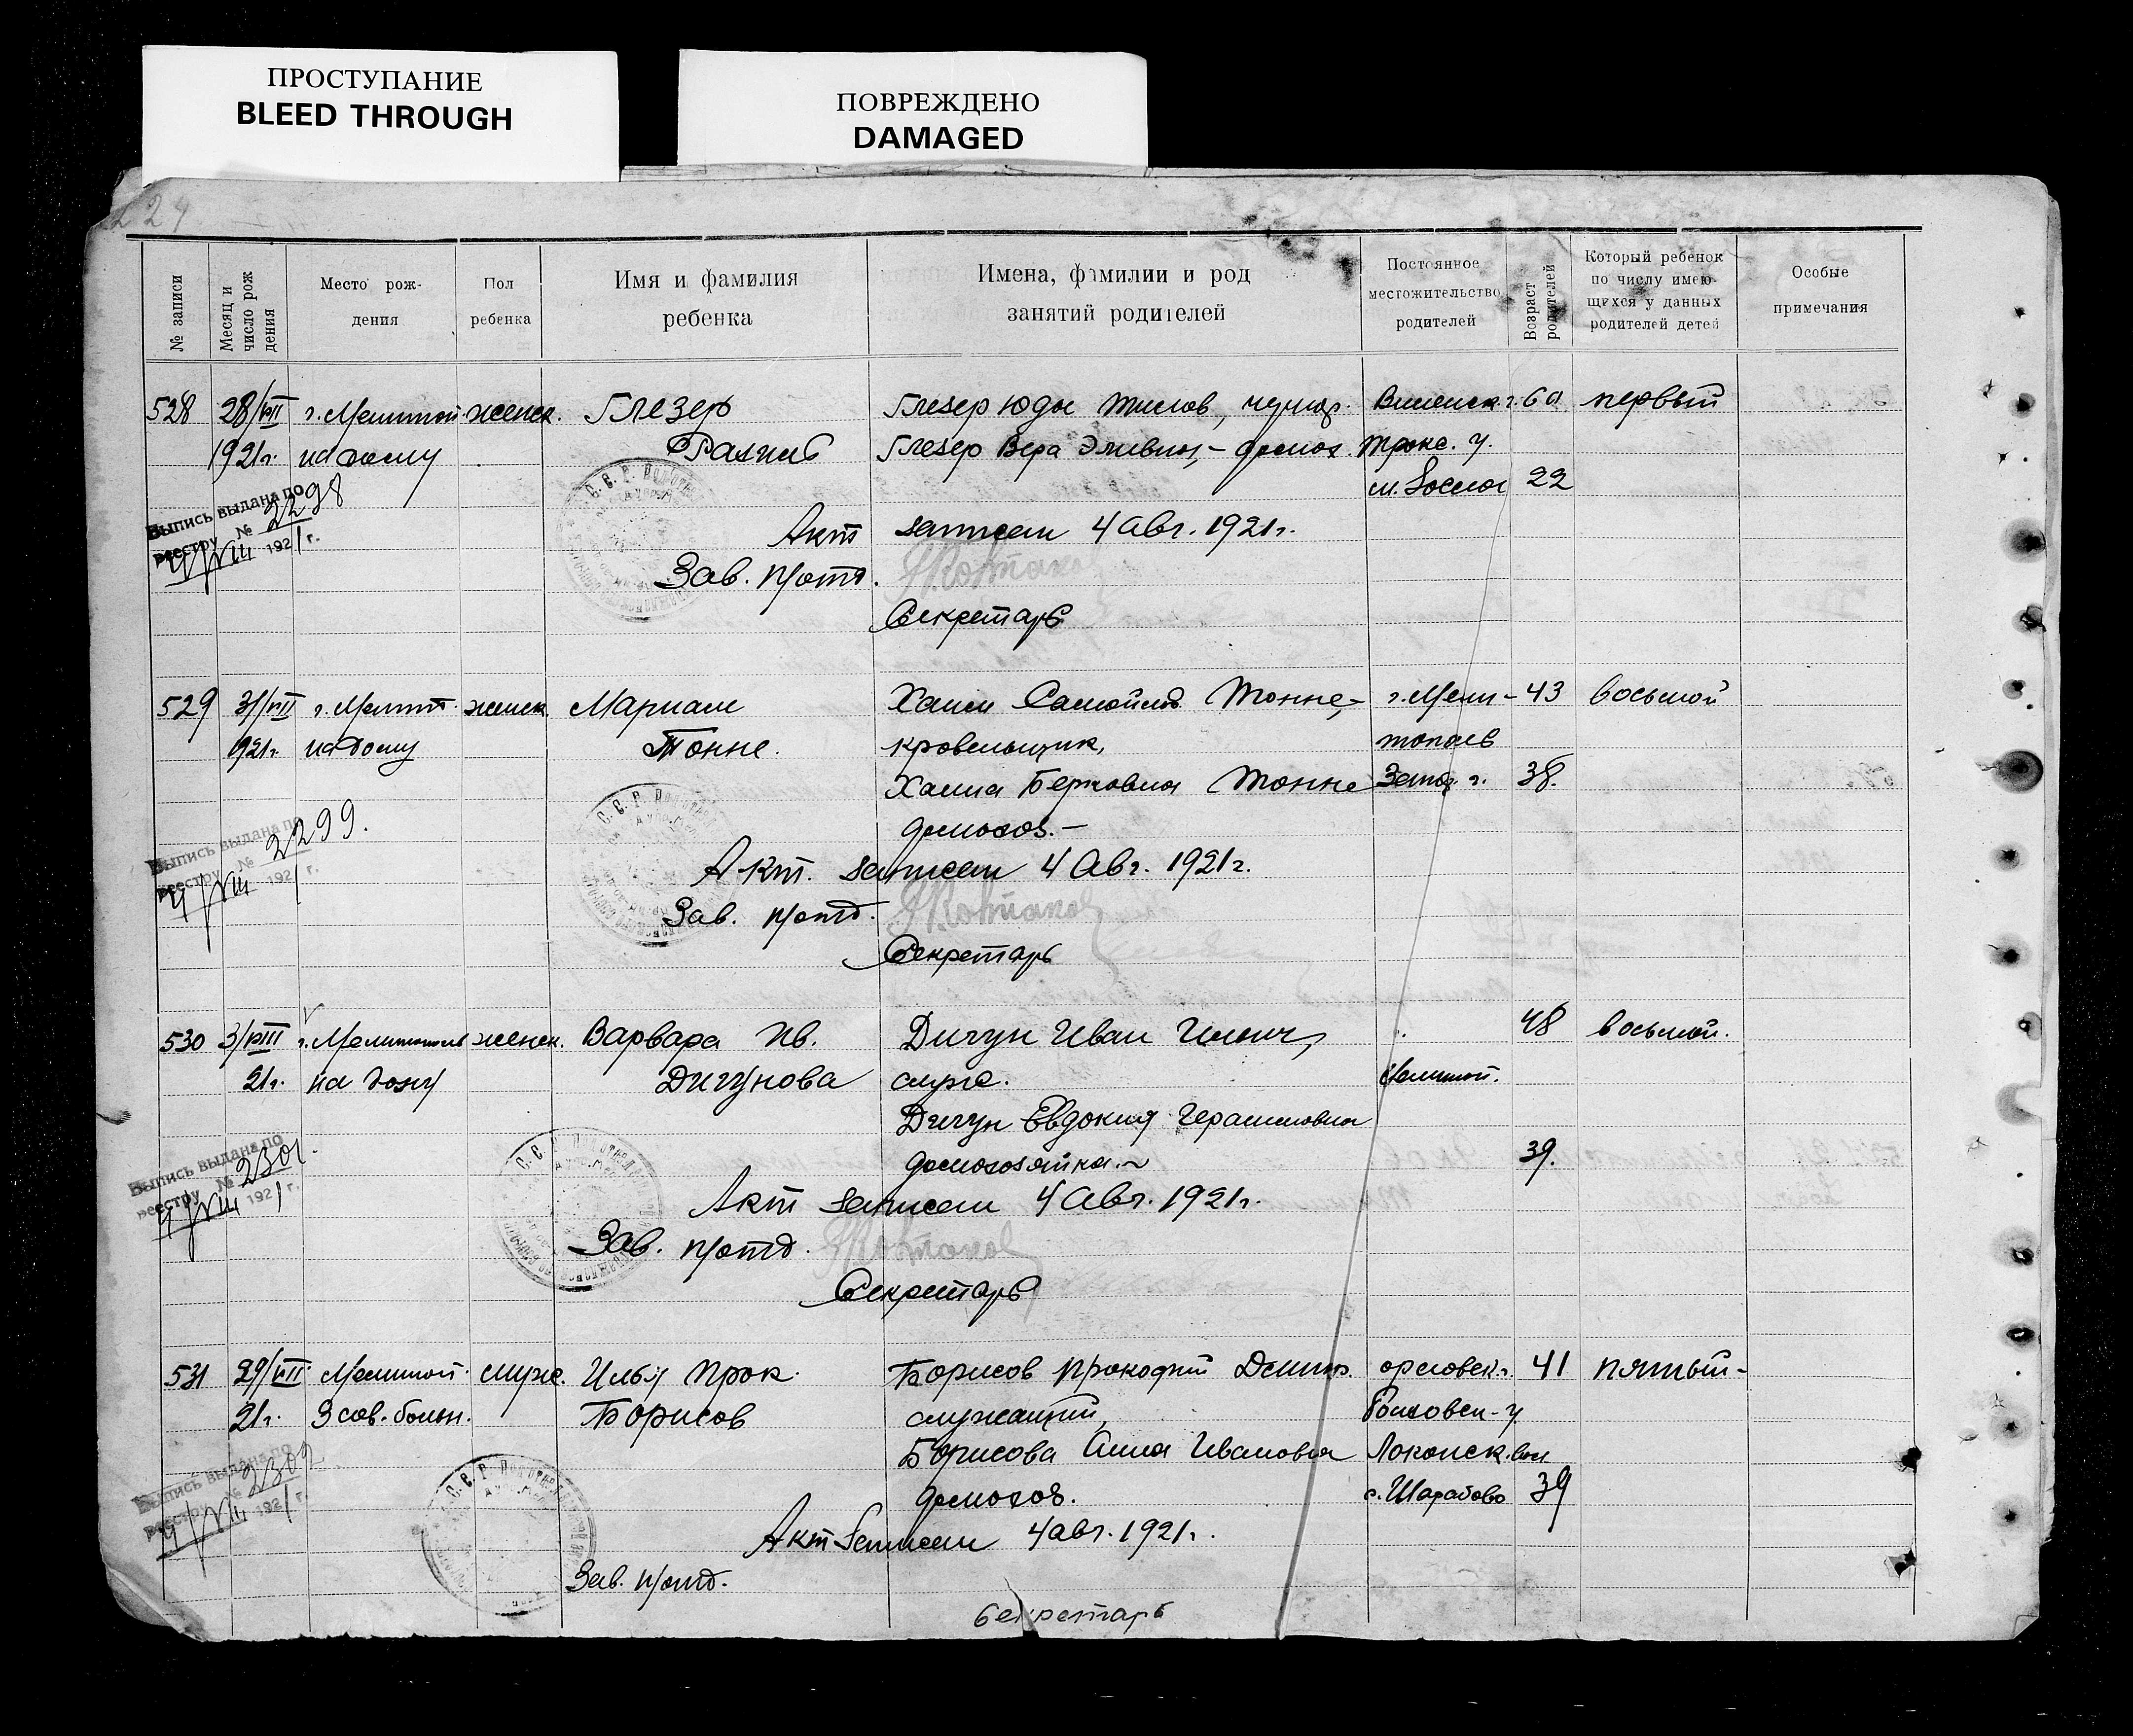 ПРОСТУПАНИЕ
BLEED THROUGH
ПОВРЕЖДЕНО
DAMAGED
№ записи
Месяц и число рождения
Место рож-
дения
Пол
ребенка
Имя и фамилия
ребенка
Имена, фамилии и род
занятий родителей
Постоянное
местожительство
родителей
Возраст
родителей
Который ребенок
по числу имею-
щихся у данных
родителей детей
Особые
примечания
528 28/VII г. Мелитоп. женск. Глезер Глезер Юда Виленск. г. 60 первый
1921г. на дому Глезер Вера домох. Трокс. у.
22
Выпись выдана по
реестру № 2298
4/VIII 1921 г.
Акт записан 4 Авг. 1921г.
Зав. п/отд.
Секретарь
529 31/VII г. Мелит. женск. Мариам Хаим Самойлов Тонне, г. Мели- 43 восьмой
1921г. на дому Тонне. кровельщик, тополь
Ханна Берковна Тонне Запор. г. 38.
домохоз. —
Выпись выдана по
реестру № 2299.
4/VIII 1921 г.
Акт. записан 4 Авг. 1921г.
Зав. п/отд.
Секретарь
530 3/VIII г. Мелитополь женск. Варвара Ив. Дигун Иван Ильич, 48 восьмой.
21г. на дому Дигунова Мелитоп.
Дигун Евдокия Герасимовна
домохозяйка. 39.
Выпись выдана по
реестру № 2301.
4/VIII 1921 г.
Акт записан 4 Авг. 1921г.
Зав. п/отд.
Секретарь
531 29/VII Мелитоп. мужс. Илья Прок. Борисов Прокофий Дмитр. орловск. г. 41 пятый-
21г. 3 сов. больн. Борисов служащий,
Борисова Анна Ивановна
домохоз. с. Шарабово 39
Выпись выдана по
реестру № 2302
4/VIII 1921 г.
Акт записан 4 авг. 1921г.
Зав. п/отд.
Секретарь